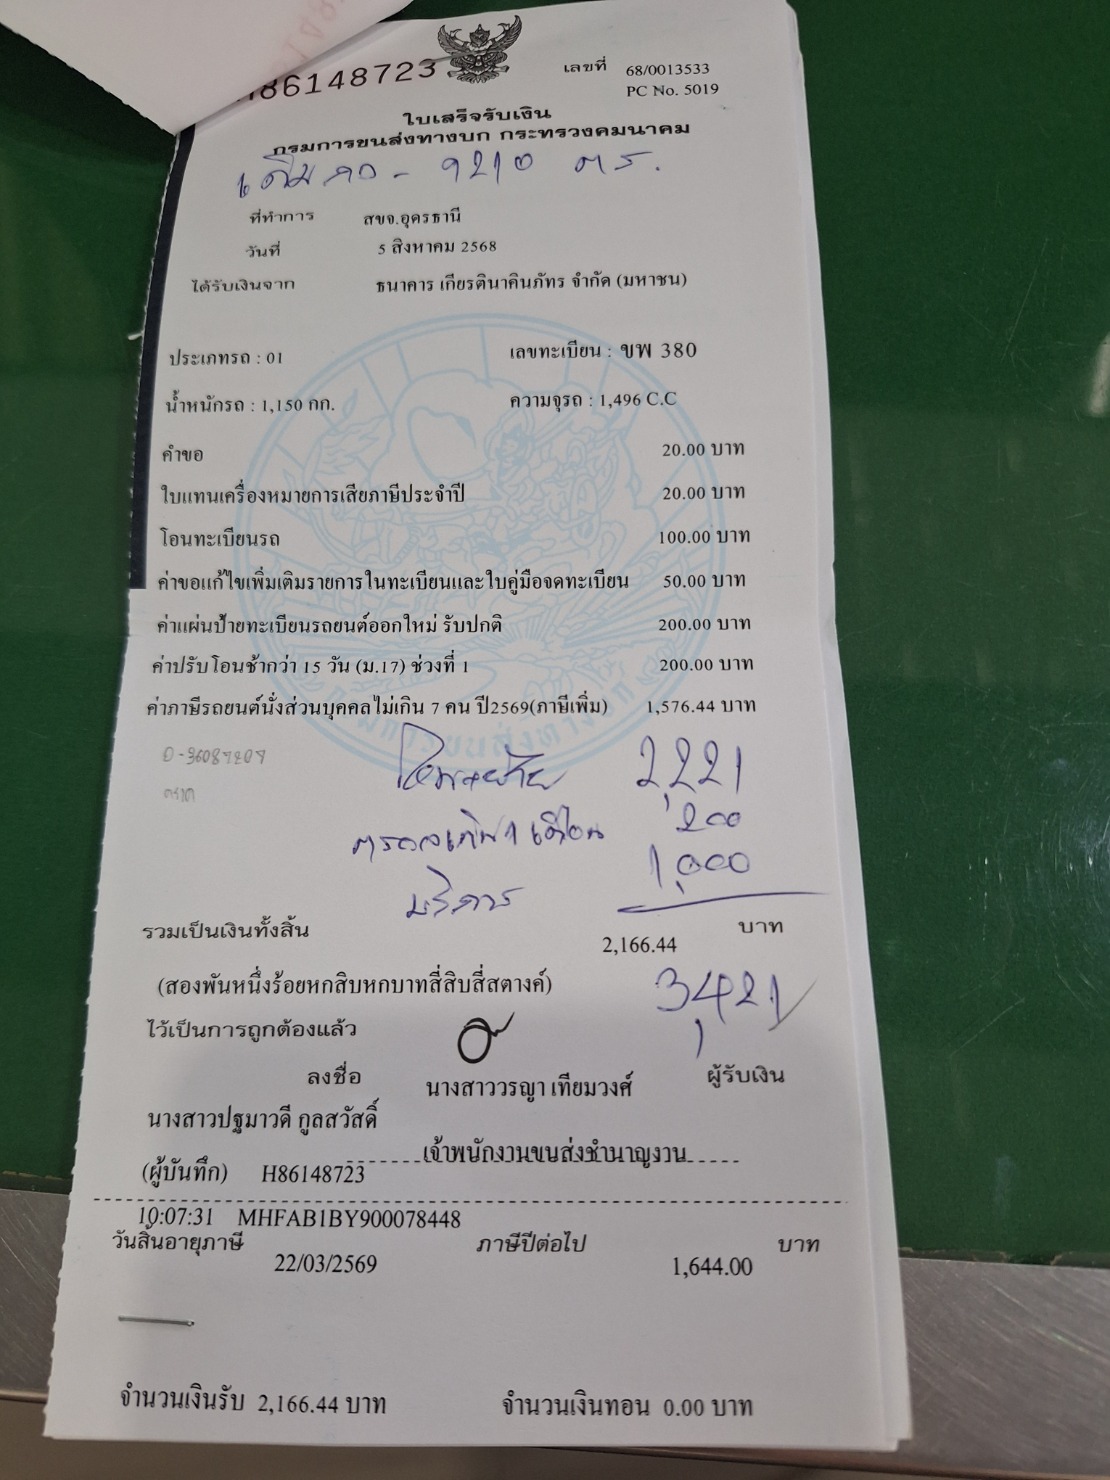 H86148723
เลขที่ 68/0013533
PC No. 5019
ใบเสร็จรับเงิน
กรมการขนส่งทางบก กระทรวงคมนาคม
เดิม กอ - 9210 ตร.
ที่ทำการ สขจ.อุดรธานี
วันที่ 5 สิงหาคม 2568
ได้รับเงินจาก ธนาคาร เกียรตินาคินภัทร จำกัด (มหาชน)
ประเภทรถ : 01 เลขทะเบียน : ขพ 380
น้ำหนักรถ : 1,150 กก. ความจุรถ : 1,496 C.C
คำขอ 20.00 บาท
ใบแทนเครื่องหมายการเสียภาษีประจำปี 20.00 บาท
โอนทะเบียนรถ 100.00 บาท
ค่าขอแก้ไขเพิ่มเติมรายการในทะเบียนและใบคู่มือจดทะเบียน 50.00 บาท
ค่าแผ่นป้ายทะเบียนรถยนต์ออกใหม่ รับปกติ 200.00 บาท
ค่าปรับโอนช้ากว่า 15 วัน (ม.17) ช่วงที่ 1 200.00 บาท
ค่าภาษีรถยนต์นั่งส่วนบุคคลไม่เกิน 7 คน ปี2569(ภาษีเพิ่ม) 1,576.44 บาท
2,221
200
บริการ 1,000
รวมเป็นเงินทั้งสิ้น 2,166.44 บาท
(สองพันหนึ่งร้อยหกสิบหกบาทสี่สิบสี่สตางค์) 3,421
ไว้เป็นการถูกต้องแล้ว
ลงชื่อ นางสาววรญา เทียมวงศ์ ผู้รับเงิน
นางสาวปฐมาวดี กูลสวัสดิ์
(ผู้บันทึก) H86148723 เจ้าพนักงานขนส่งชำนาญงาน
10:07:31 MHFAB1BY900078448
วันสิ้นอายุภาษี 22/03/2569 ภาษีปีต่อไป 1,644.00 บาท
จำนวนเงินรับ 2,166.44 บาท จำนวนเงินทอน 0.00 บาท